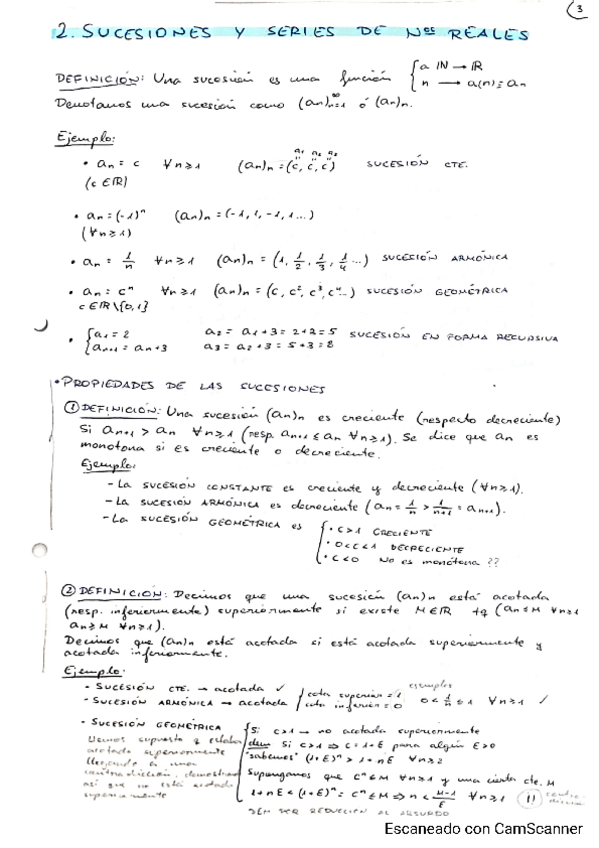 3
2. SUCESIONES Y SERIES DE Nos REALES
DEFINICIÓN: Una sucesión es una función { a IN → IR
n → a(n) = an
Denotamos una sucesión como (an)∞n=1 ó (an)n.
Ejemplo:
a1 a2 a3
• an = c ∀n≥1 (an)n = (c, c, c) SUCESIÓN CTE.
(c ∈ IR)
• an = (-1)^n (an)n = (-1, 1, -1, 1...)
(∀n≥1)
• an = 1/n ∀n≥1 (an)n = (1, 1/2, 1/3, 1/4 ...) SUCESIÓN ARMÓNICA
• an = c^n ∀n≥1 (an)n = (c, c², c³, c⁴...) SUCESIÓN GEOMÉTRICA
c ∈ IR\{0,1}
• { a1 = 2 a2 = a1+3 = 2+2 = 5 SUCESIÓN EN FORMA RECURSIVA
an+1 = an+3 a3 = a2+3 = 5+3 = 8
• PROPIEDADES DE LAS SUCESIONES
① DEFINICIÓN: Una sucesión (an)n es creciente (respecto decreciente)
Si an+1 > an ∀n≥1 (resp. an+1 ≤ an ∀n≥1). Se dice que an es
monótona si es creciente o decreciente.
Ejemplo:
- La SUCESIÓN CONSTANTE es creciente y decreciente (∀n≥1).
- La SUCESIÓN ARMÓNICA es decreciente (an = 1/n > 1/n+1 = an+1).
- La SUCESIÓN GEOMÉTRICA es { • C>1 CRECIENTE
• 0<c<1 DECRECIENTE
• c<0 No es monótona ??
② DEFINICIÓN: Decimos que una sucesión (an)n está acotada
(resp. inferiormente) superiormente si existe M∈IR tq (an≤M ∀n≥1
an≥M ∀n≥1).
Decimos que (an)n está acotada si está acotada superiormente y
acotada inferiormente.
Ejemplo:
- SUCESIÓN CTE. → acotada ✓ ejemplos
- SUCESIÓN ARMÓNICA → acotada { cota superior = 1
cota inferior = 0 0 < 1/n ≤ 1 ∀n≥1 ✓
- SUCESIÓN GEOMÉTRICA { Si c>1 → no acotada superiormente
Hemos supuesto q estaba dem Si c>1 ⇒ c = 1+E para algún E>0
acotada superiormente "sabemos" (1+E)^n > 1+nE ∀n≥2
llegando a una
contradicción, demostrando Supongamos que c^n ≤ M ∀n≥1 y una cierta cte. M
así que no está acotada 1+nE < (1+E)^n = c^n ≤ M ⇒ n < M-1/E ∀n≥1 !!
superiormente
DEM POR REDUCCIÓN AL ABSURDO
Escaneado con CamScanner